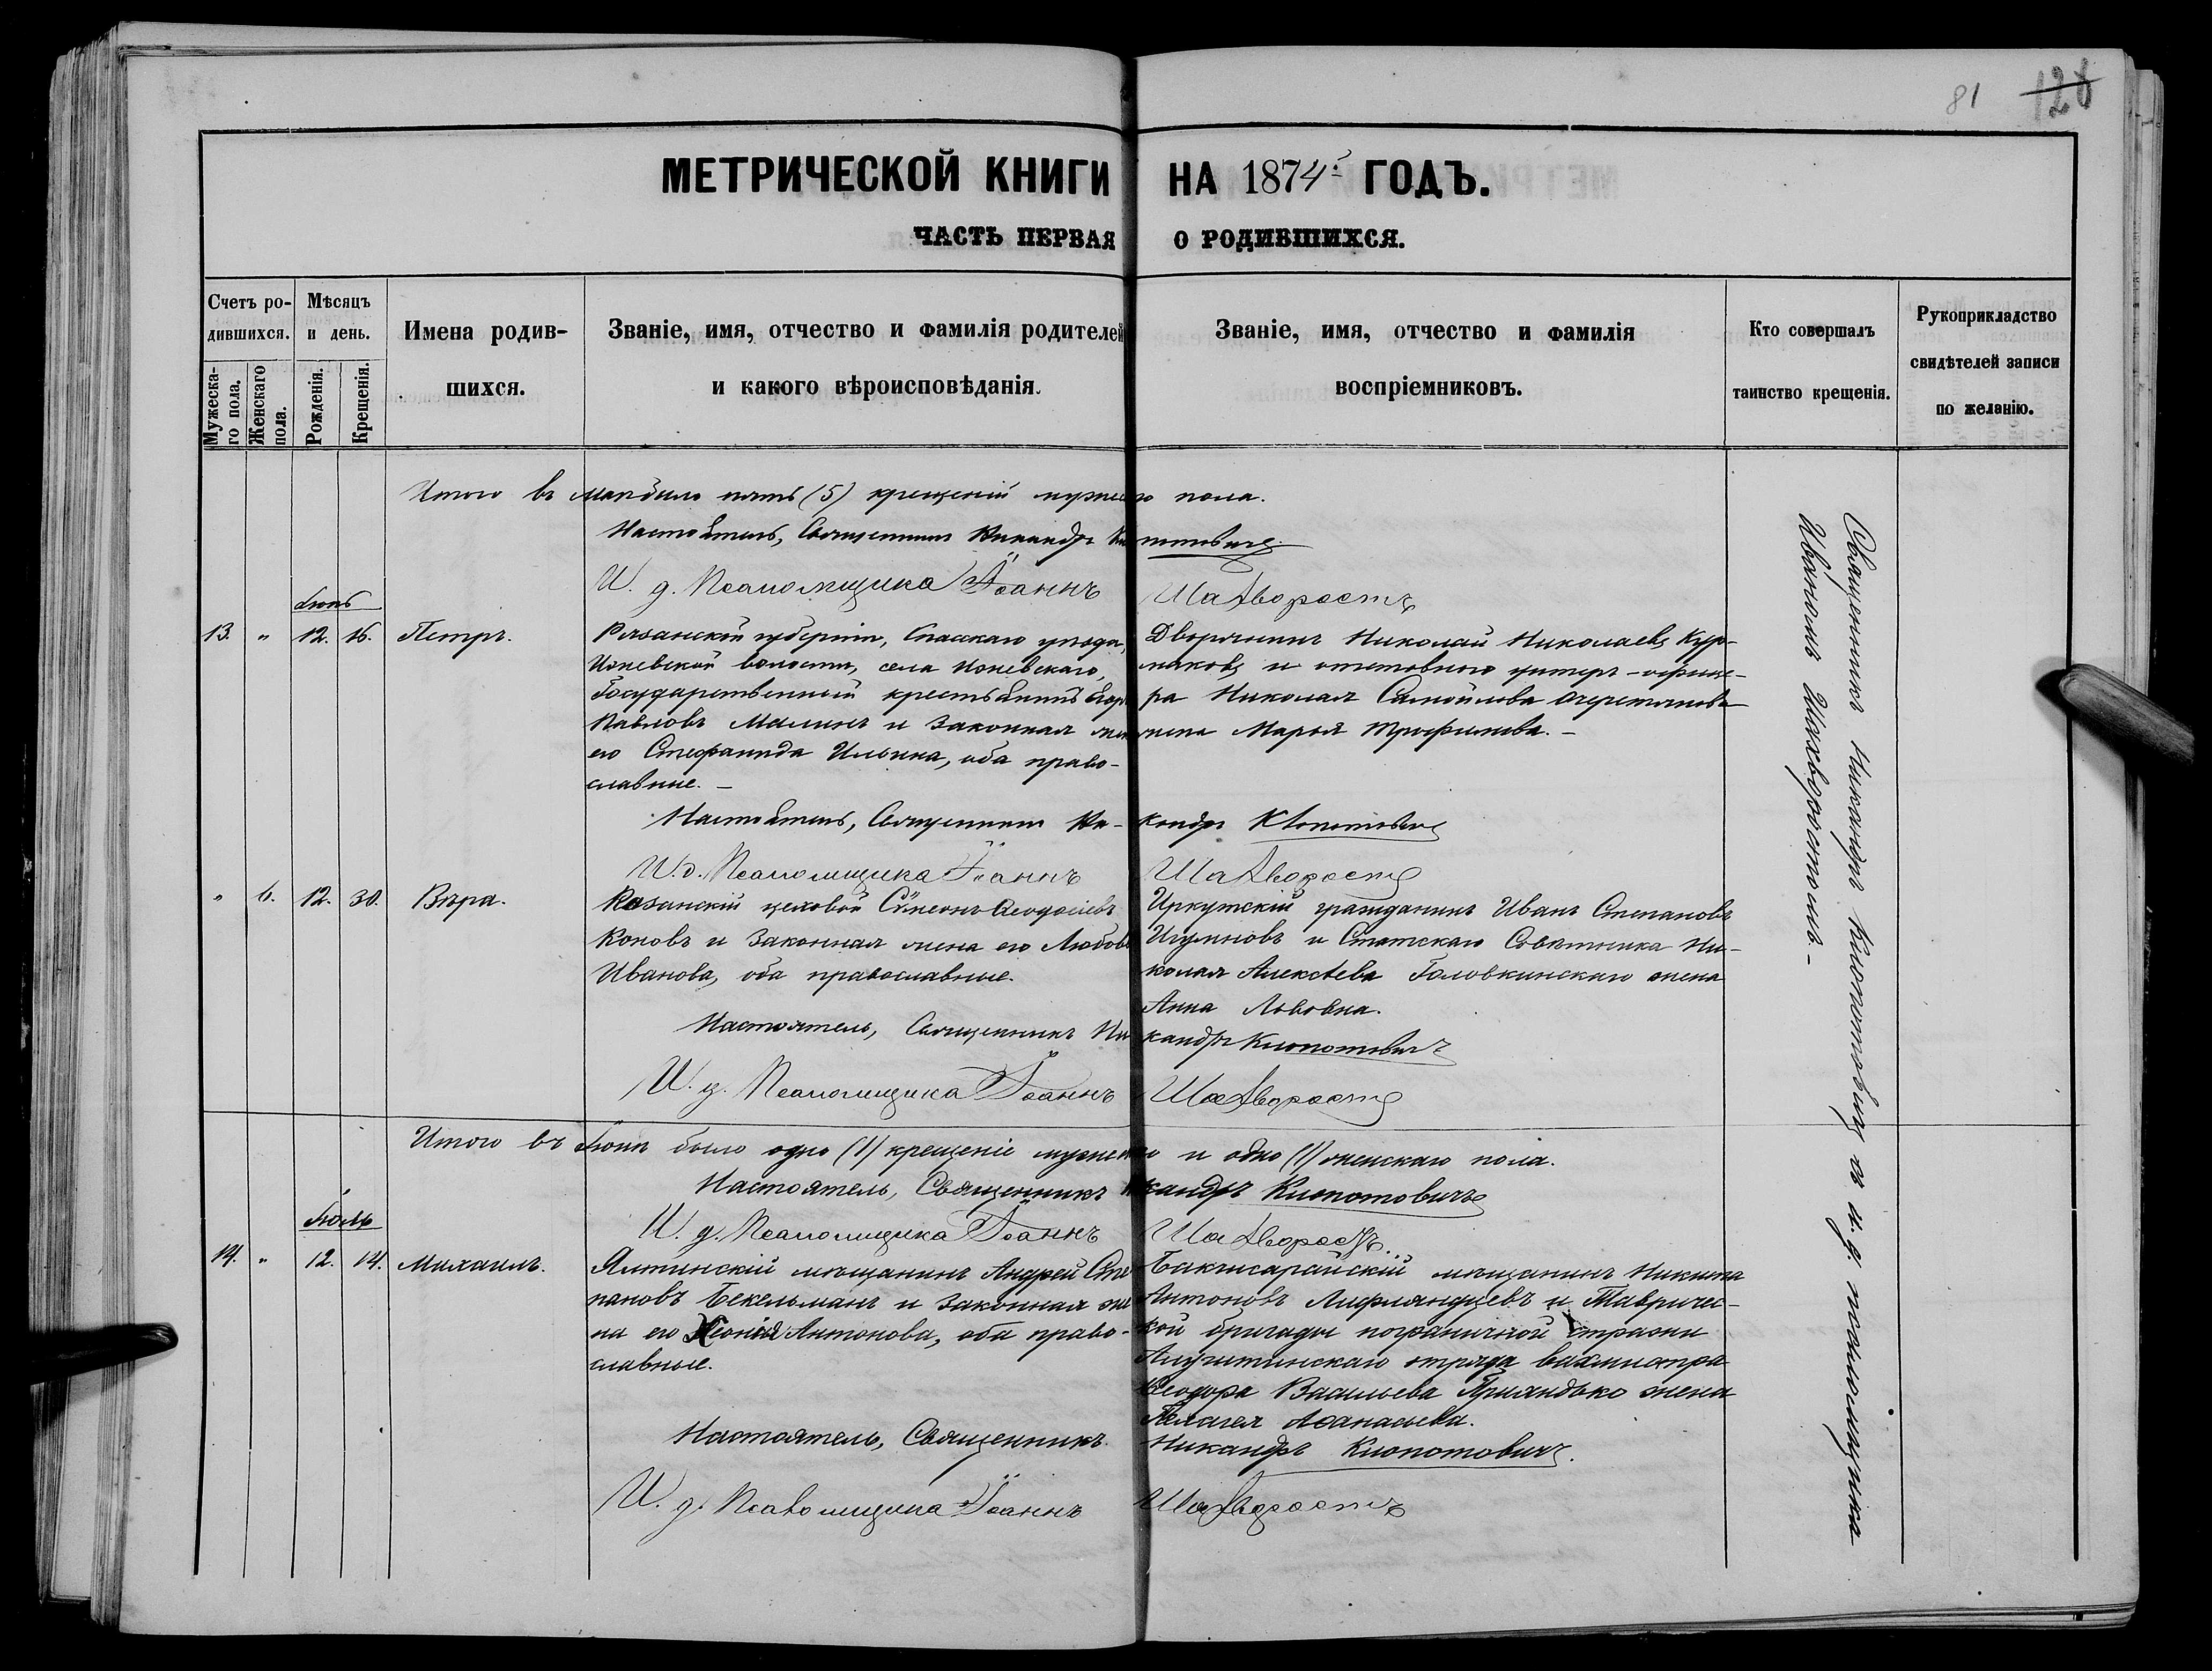 81 128
МЕТРИЧЕСКОЙ КНИГИ НА 1874й ГОДЪ.
ЧАСТЬ ПЕРВАЯ О РОДИВШИХСЯ.
Счетъ ро-
дившихся.
Мужеска-
го пола.
Женскаго
пола.
Мѣсяцъ
и день.
Рожденія.
Крещенія.
Имена родив-
шихся.
Званіе, имя, отчество и фамилія родителей
и какого вѣроисповѣданія.
Званіе, имя, отчество и фамилія
воспріемниковъ.
Кто совершалъ
таинство крещенія.
Рукоприкладство
свидѣтелей записи
по желанію.
Итого въ было пять (5) крещеній пола.
Настоятель, Священникъ Никандръ
И. д. Псаломщика Іоаннъ Шахворостъ
Іюнь
13. " 12. 16. Петръ.
Рязанской губерніи, Спасскаго уѣзда,
Ижевской волости, села Ижевскаго,
Государственный крестьянинъ
Павловъ Малинъ и законная
его Стефанида Ильина, оба право-
славные. –
Дворянинъ Николай Николаевъ Кур-
маковъ и отставного унтеръ-офице-
ра Николая Самойлова
жена Марья Трофимова. –
Настоятель, Священникъ Ни-кандръ Клопотовичъ
И. д. Псаломщика Іоаннъ Шахворостъ
" 6. 12. 30. Вѣра.
Казанскій цеховой Сѵмеонъ Ѳеодосіевъ
Коновъ и законная жена его Любовь
Иванова, оба православные.
Иркутскій гражданинъ Иванъ Степановъ
Игумновъ и Статскаго Совѣтника Ни-
колая Алексѣева Головкинскаго жена
Анна Львовна.
Настоятель, Священникъ Никандръ Клопотовичъ
И. д. Псаломщика Іоаннъ Шахворостъ
Итого въ Іюнѣ было одно (1) крещеніе мужескаго и одно (1) женскаго пола.
Настоятель, Священникъ Никандръ Клопотовичъ
И. д. Псаломщика Іоаннъ Шахворостъ
Іюль
14. " 12. 14. Михаилъ.
Ялтинскій мѣщанинъ Андрей Сте-
пановъ Бекельманъ и законная же-
на его Антонова, оба право-
славные.
Бакчисарайскій мѣщанинъ Никита
Антоновъ Лифляндцевъ и Тавричес-
кой бригады пограничной стражи
Алуштинскаго отряда вахмистра
Ѳеодора Васильева жена
Пелагея Аѳанасьева.
Настоятель, Священникъ Никандръ Клопотовичъ.
И. д. Псаломщика Іоаннъ Шахворостъ
Священникъ Никандръ Клопотовичъ съ и. д. псаломщика
Іоанномъ Шахворостомъ. –